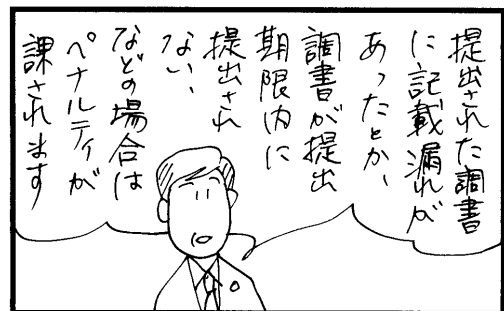 提出された調書
に記載漏れが
あったとか、
調書が提出
期限内に
提出され
ない、
などの場合は
ペナルティが
課されます